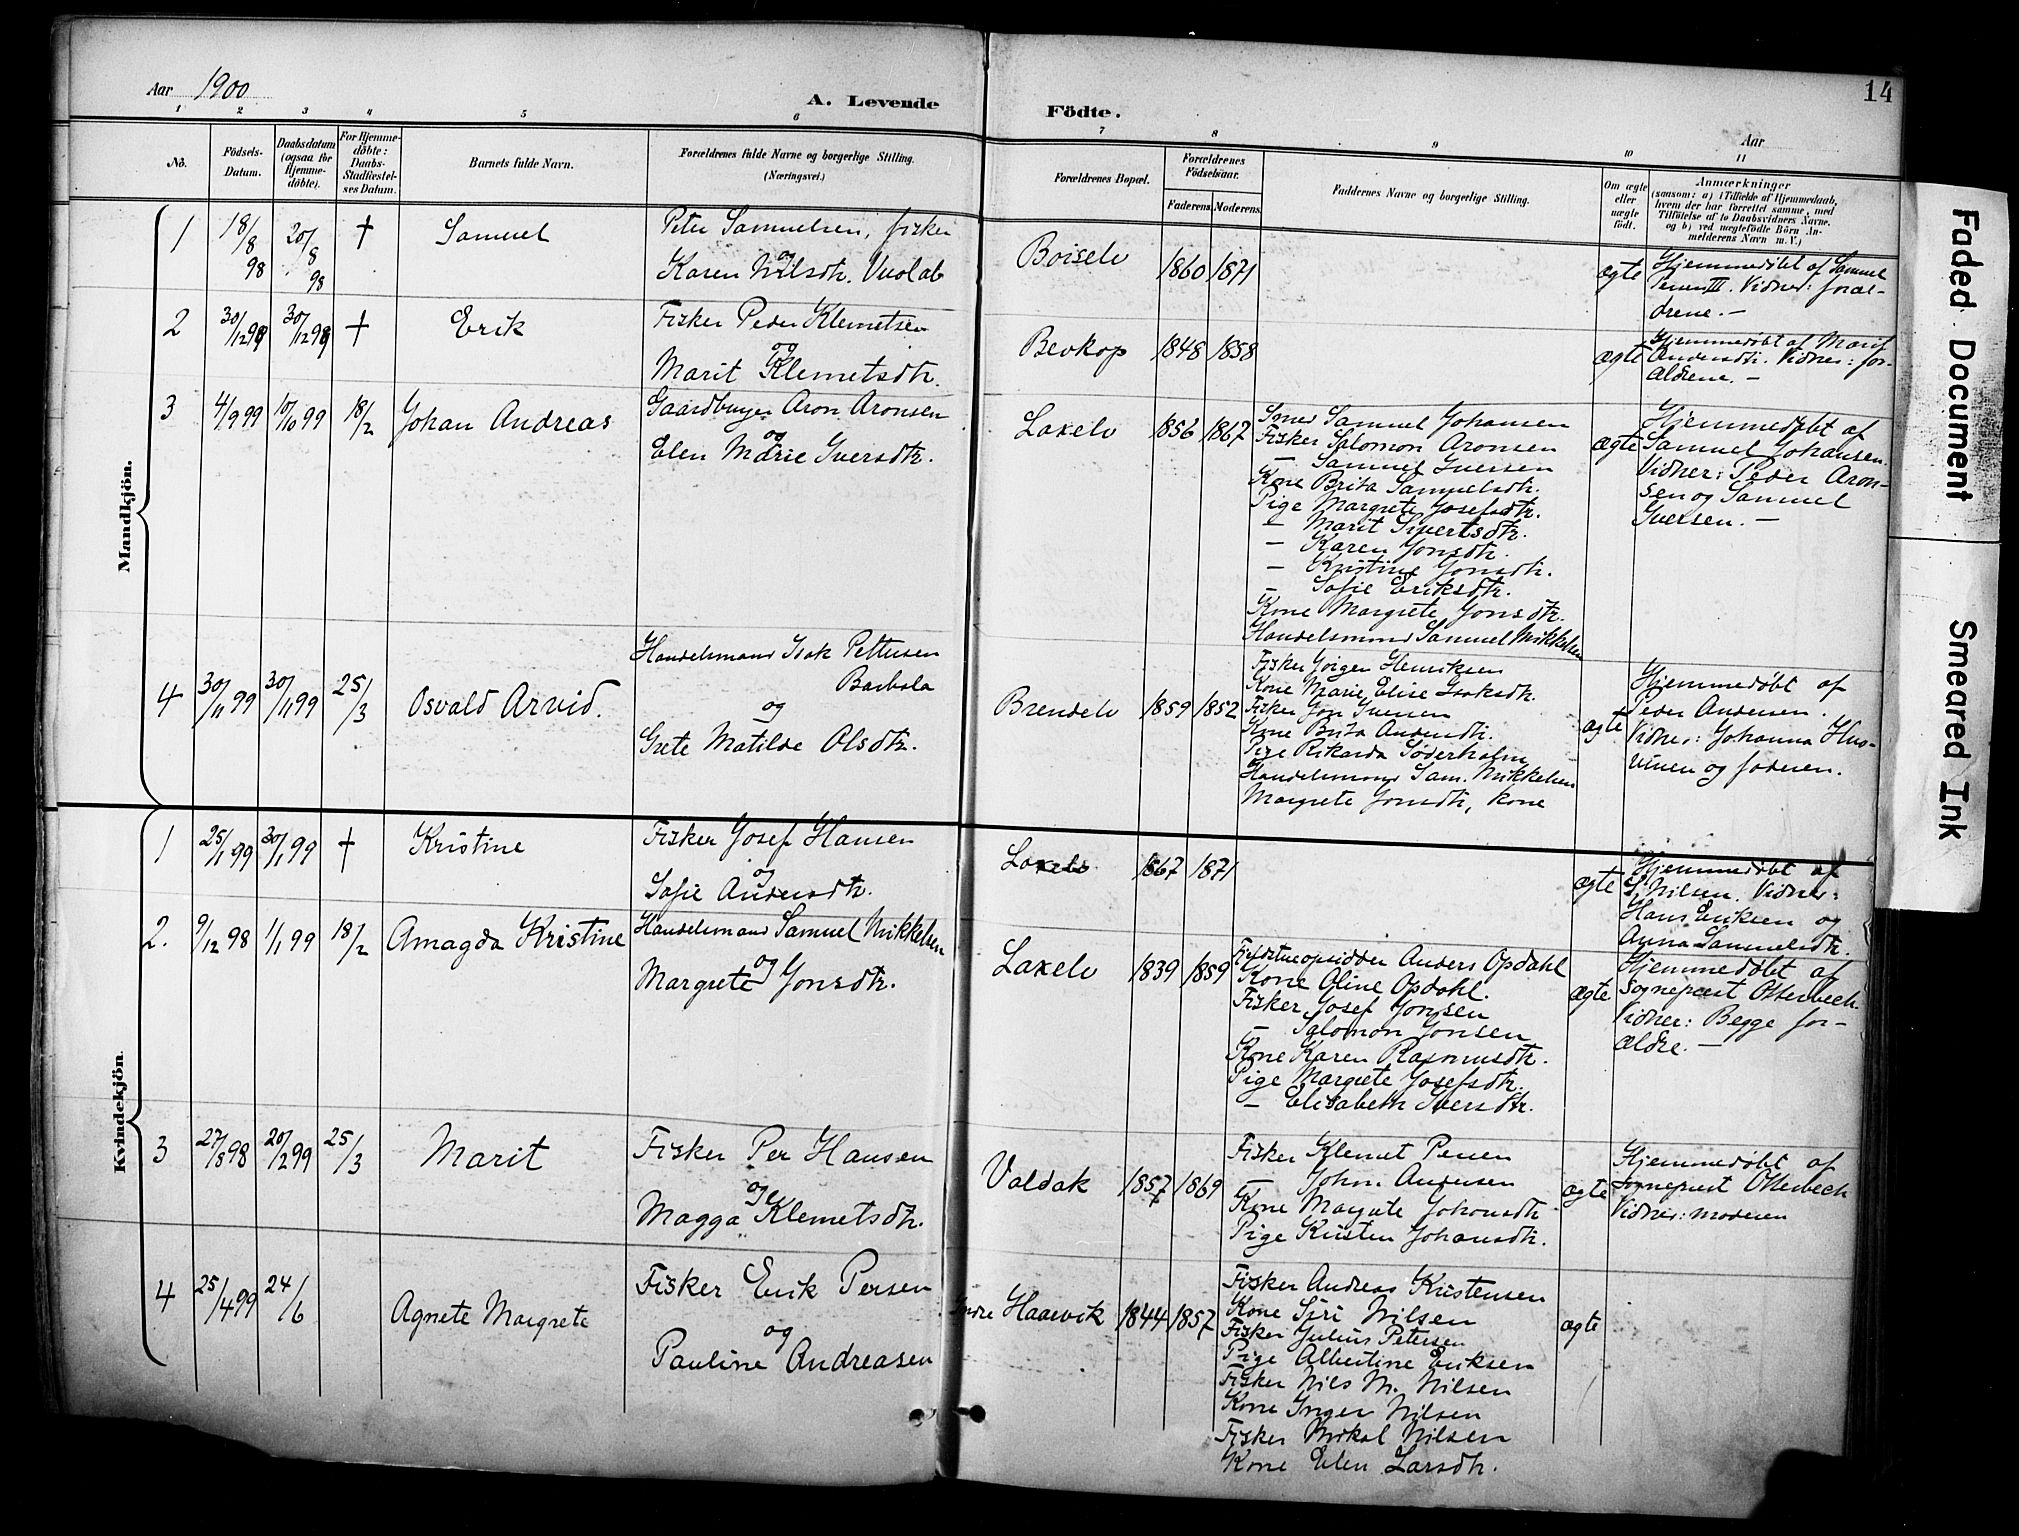 Aar 1900
A. Levende
Födte.
14
Aar
1 2 3 4 5 6 7 8 9 10 11
No.
Födsels-
Datum.
Daabsdatum
(ogsaa for
Hjemme-
døbte).
For Hjemme-
døbte:
Daabs-
Stadfæstel-
ses Datum.
Barnets fulde Navn.
Forældrenes fulde Navne og borgerlige Stilling.
(Næringsvei.)
Forældrenes Bopæl.
Forældrenes
Födselsaar.
Faderens. Moderens.
Faddernes Navne og borgerlige Stilling.
Om ægte
eller
uægte
født.
Anmærkninger
(saasom: a) i Tilfælde af Hjemmedaab,
hvem der har forrettet samme, med
Tilføielse af to Daabsvidners Navne,
og b) ved uægtefödte Börn An-
melderens Navn m. V.)
Mandkjön.
1 18/8 98 20/8 98 † Samuel
Peter Samuelsen, fisker
og
Karen Nilsdtr. Vuolab
Boiselv 1860 1871 ægte
Hjemmedøbt af Samuel
Persen III. Vidner: foræl-
drene. —
2 30/12 98 30/12 98 † Erik
Fisker Peder Klemetsen
og
Marit Klemetsdtr.
Bevkop 1848 1858 ægte
Hjemmedøbt af Marit
Andersdtr. Vidner: for-
ældrene. —
3 4/9 99 10/10 99 18/2 Johan Andreas
Gaardbruger Aron Aronsen
og
Elen Marie Iversdtr.
Laxelv 1856 1867
Samuel Johansen
Fisker Salomon Aronsen
— Samuel Iversen
Kone Brita Samuelsdtr.
Pige Margrete Josefsdtr.
— Marit Sivertsdtr.
— Karen Jonsdtr.
— Kristine Jonsdtr.
— Sofie Eriksdtr.
Kone Margrete Jonsdtr.
Handelsmand Samuel Mikkelsen
ægte
Hjemmedøbt af
Samuel Johansen.
Vidner: Peder Aron-
sen og Samuel
Iversen. —
4 30/11 99 30/11 99 25/3 Osvald Arvid.
Handelsmand Isak Pettersen
Barbala
og
Grete Matilde Olsdtr.
Brendelv 1859 1852
Fisker Jørgen Henriksen
Kone Marie Elise Isaksdtr.
Fisker Jon Iversen
Kone Brita Andersdtr.
Pige Rikarda Søderholm
Handelsmand Sam. Mikkelsen
og
Margrete Jonsdtr, kone
ægte
Hjemmedøbt af
Peder Andersen.
Vidner: Johanna Hus-
vinen og faderen.
Kvindekjön.
1 25/1 99 30/1 99 † Kristine
Fisker Josef Hansen
og
Sofie Andersdtr.
Laxelv 1867 1871 ægte
Hjemmedøbt af
S. Nilsen. Vidner:
Hans Eriksen og
Anna Samuelsdtr.
2. 9/12 98 1/1 99 18/2 Amagda Kristine
Handelsmand Samuel Mikkelsen
og
Margrete Jonsdtr.
Laxelv 1839 1859
Fjeldstueopsidder Anders Opdahl
Kone Oline Opdahl.
Fisker Josef Jonsen
— Salomon Jonsen
Kone Karen Rasmusdtr.
Pige Margrete Josefsdtr.
— Elisabeth Iversdtr.
ægte
Hjemmedøbt af
sognepræst Otterbech.
Vidner: Begge for-
ældre. —
3 27/8 98 20/2 99 25/3 Marit
Fisker Per Hansen
og
Magga Klemetsdtr.
Valdak 1857 1869
Fisker Klemet Persen
— John Andersen
Kone Margrete Johansdtr
Pige Kirsten Johansdtr.
ægte
Hjemmedøbt af
sognepræst Otterbech
Vidner: moderen
4 25/4 99 24/6 Agnete Margrete
Fisker Erik Persen
og
Pauline Andreasen
Indre Haarvik 1844 1857
Fisker Andreas Kristensen
Kone Siri Nilsen
Fisker Julius Petersen
Pige Albertine Eriksen
Fisker Nils M. Nilsen
Kone Inger Nilsen
Fisker Mikal Nilsen
Kone Elen Larsdtr.
ægte
Faded Document
Smeared Ink